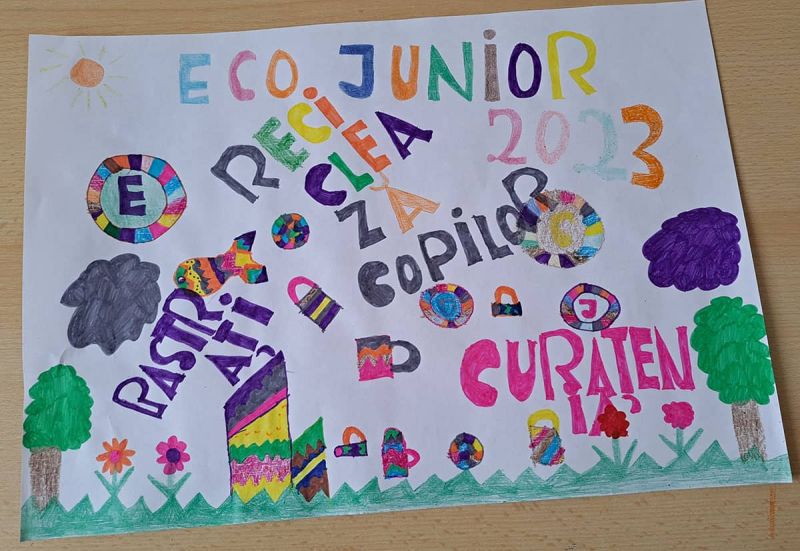 ECO JUNIOR
2023
RECICLEA
ZĂ
COPILOR
E
C
J
PASTR
AȚI
CURATEN
IA